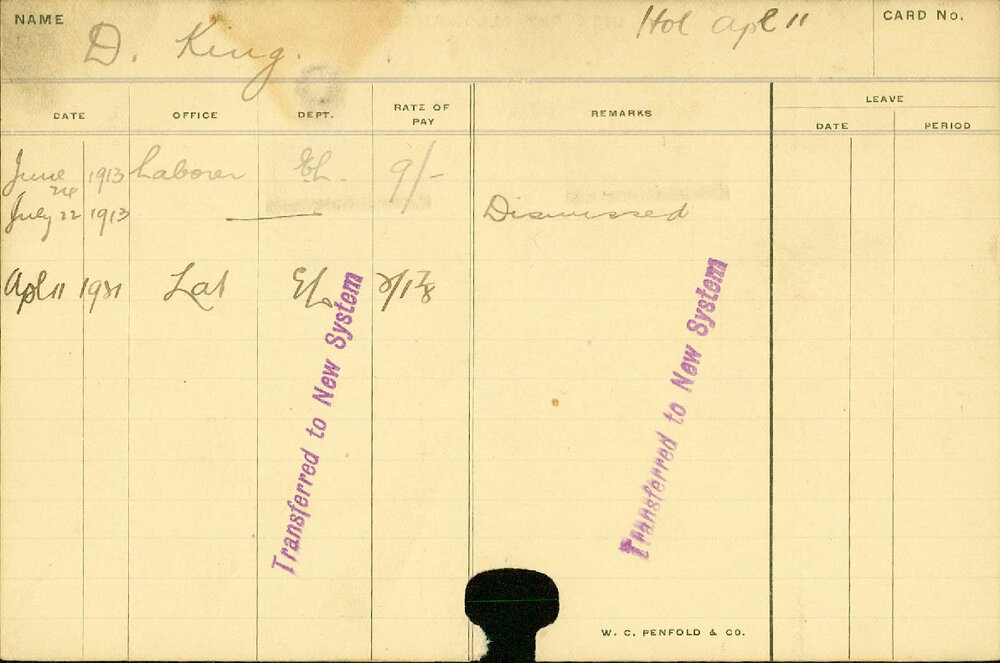 NAME D. King. Hol Apl 11 CARD No.
LEAVE
DATE OFFICE DEPT. RATE OF PAY REMARKS DATE PERIOD
June 24 1913 Laborer EL. 9/-
July 22 1913 Dismissed
Apl 11 1921 Lab EL.
Transferred to New System
Transferred to New System
W. C. PENFOLD & CO.